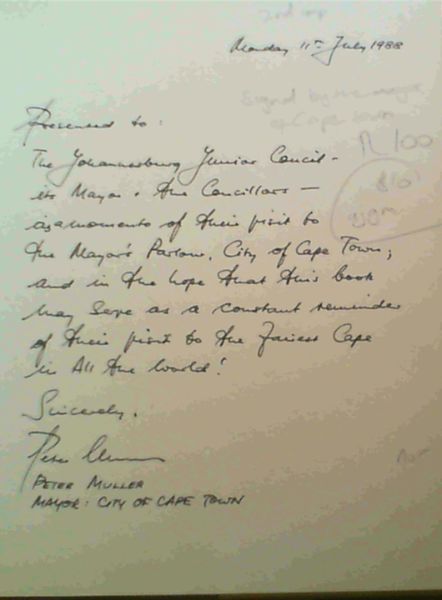 2nd imp
Monday 11th July 1988
Signed by the mayor
of Cape Town
R100
Presented to:
The Johannesburg Junior Council -
its Mayor & the Councillors -
as a momento of their visit to
the Mayor's Parlour, City of Cape Town;
and in the hope that this book
may serve as a constant reminder
of their visit to the Fairest Cape
in All the World!
Sincerely,
Peter Muller
PETER MULLER
MAYOR: CITY OF CAPE TOWN